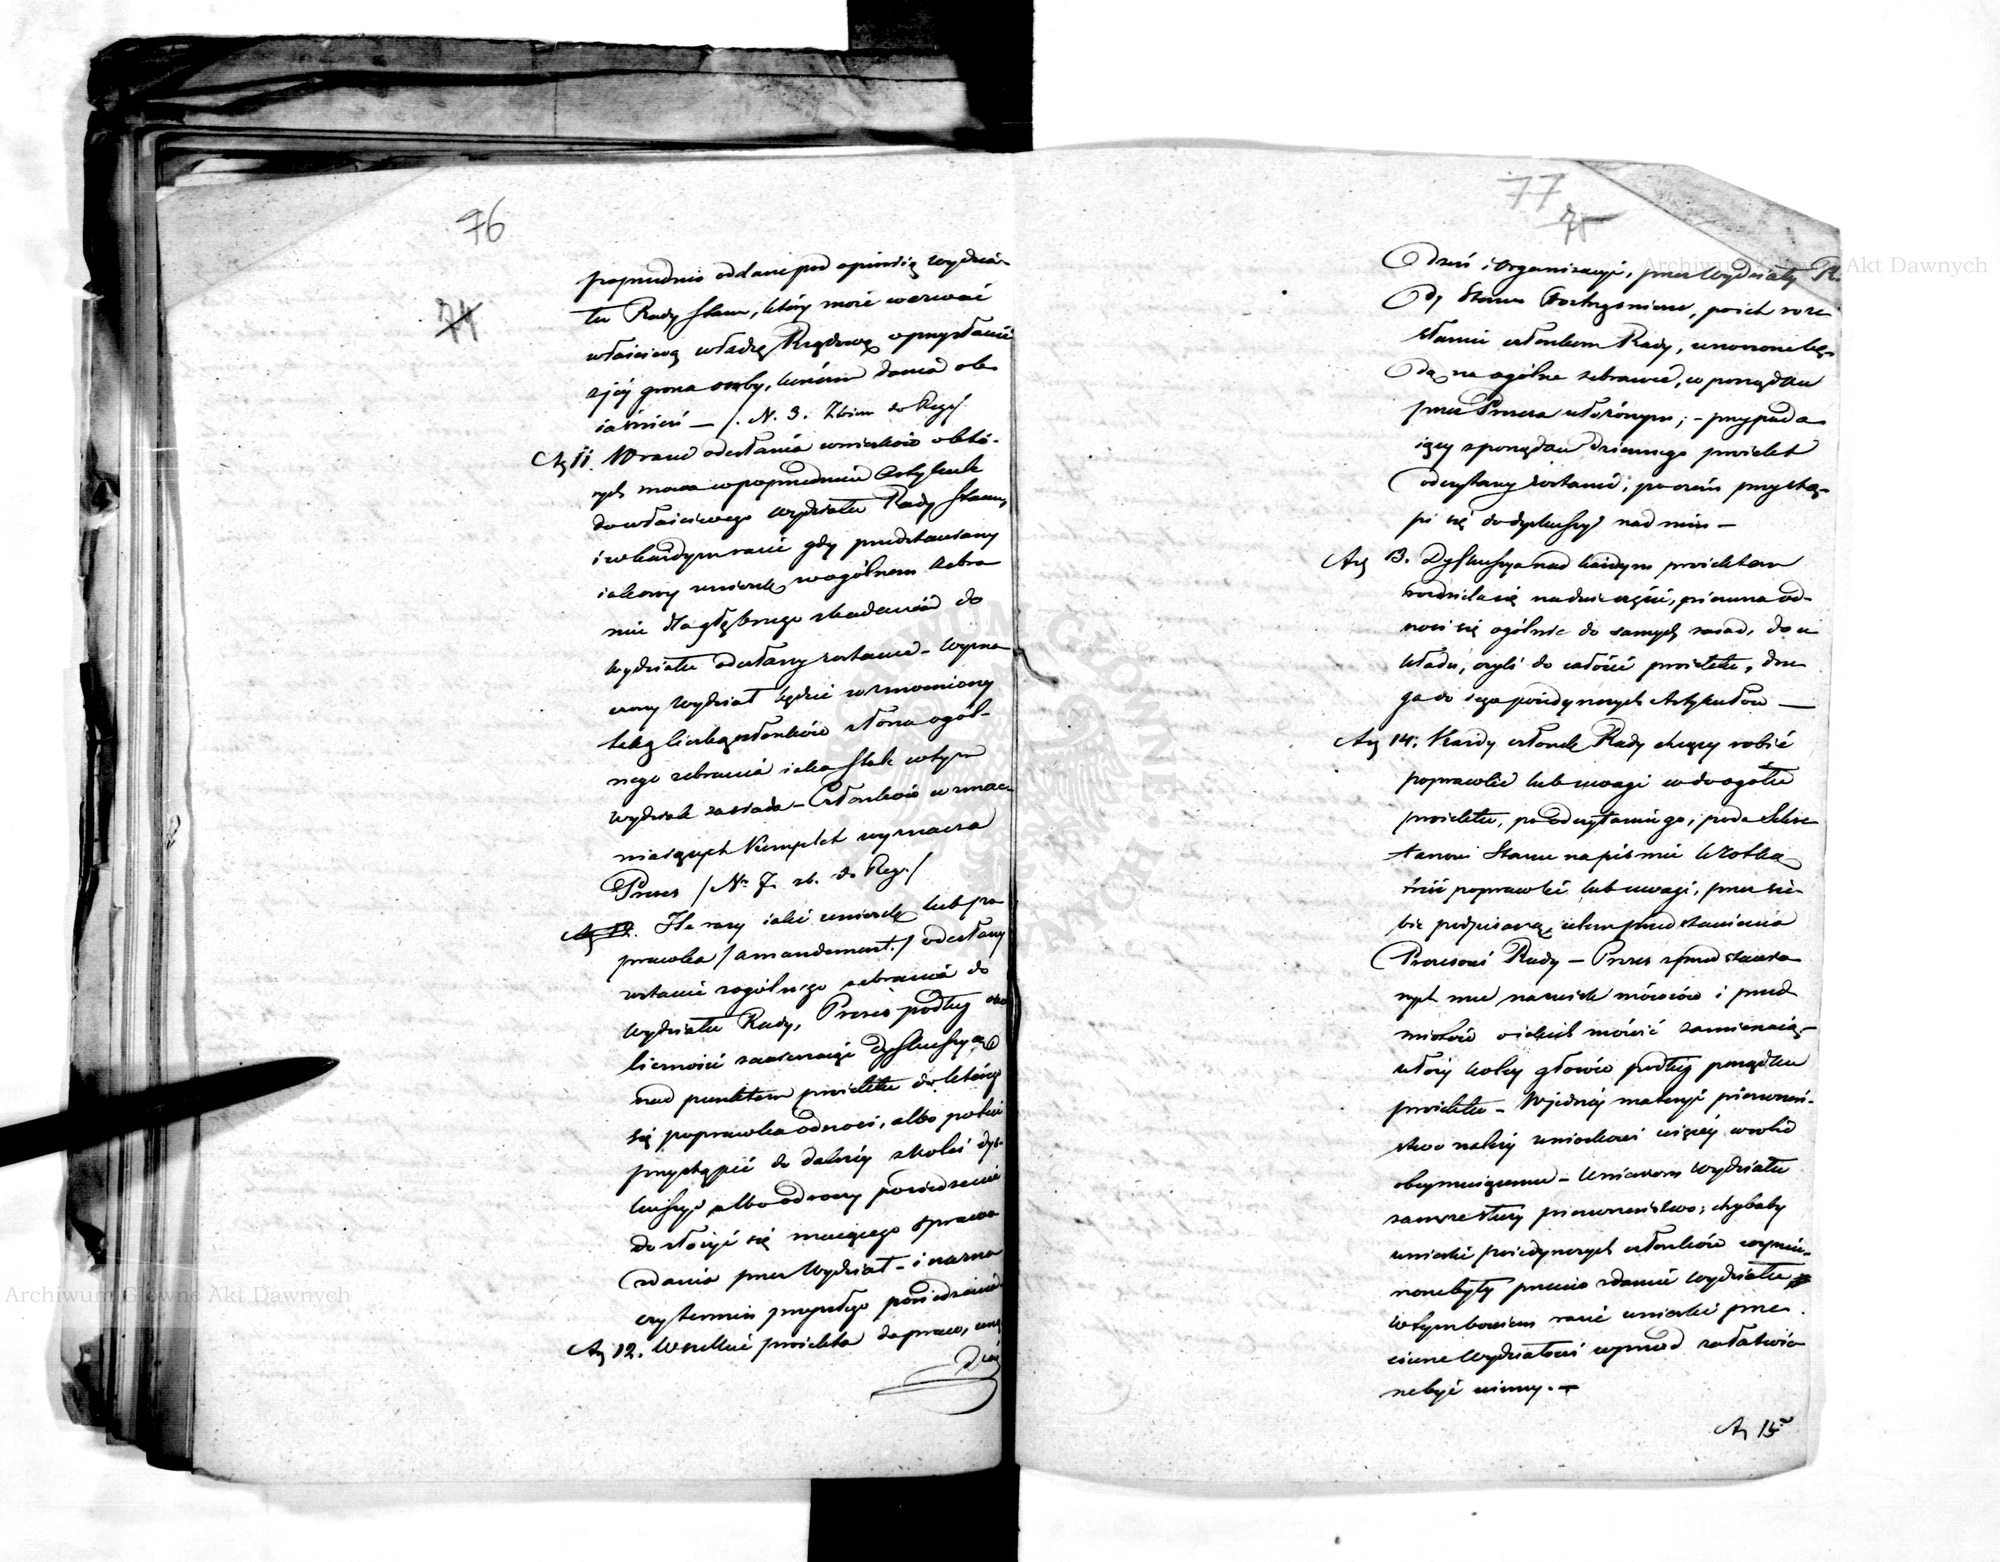 76
74
poprzednio oddane pod opinią wydzia-
łu Rady Stanu, który może wezwać
właściwą władzę Rządową o przysłanie
z jéj grona osoby, któréj dania ob-
iaśnień — /. N. 3. Zbior do Reg./
Ar 11. W razie odesłania wniosków o któ-
rych mowa w poprzedniem Artykule
do właściwego wydziału Rady Stanu,
i w każdym razie gdy przedstawiony
iakowy wniosek w ogólnem zebra
niu dla głębszego zbadania do
wydziału odesłany zostanie – wyzna
czony wydział będzie wzmocniony
taką liczbą członków z łona ogól-
nego zebrania iaka stale w tym
wydziale zasiada – Członków wzmac-
niaiących Komplet wyznacza
Prezes /Nr 7. zb. do Reg./
Ar 12. Ile razy iaki wniosek lub po
prawka /amandement./ odesłany
zostanie z ogólnego zebrania do
wydziału Rady, Prezes podług oko
liczności zawiesza dyskussyą
nad punktem proiektu do któréy
się poprawka odnosi, albo poleci
przystąpić do dalszéy z kolei dys-
kussyi albo odroczy posiedzenie
do złożyć się maiącego sprawo
zdania przez Wydział – i nazna
czy termin przyszłego posiedzenia
Ar 12. Wszelkie proiekta do praw, urzą
dzeń
77
75
dzeń i organizacyi, przez Wydziały Ra
dy Stanu roztrząśnione, po ich roze
słaniu członkom Rady, wnoszone bę-
dą na ogólne zebranie, w porządku
przez Prezesa ułożonym; – przypada
iący z porządku dziennego proiekt
odczytany zostanie, poczém przystą-
pi się do dyskussyi nad nim —
Art 13. Dyskussya nad każdym proiektem
rozdziela się na dwie części, pierwsza od-
nosi się ogólnie do samych zasad, do u
kładu, czyli do całości proiektu, dru
ga do iego poiedynczych Artykułów —
Art 14. Każdy członek Rady chcący robić
poprawki lub uwagi w do ogółu
proiektu, po odczytaniu go, poda Sekre
tarzowi Stanu na piśmie krótką
treść poprawki lub uwagi, przez sie-
bie podpisaną, celem przedstawienia
Prezesowi Rady – Prezes z przedstawio
nych mu nazwisk mówców i przed
miotów o iakich mówić zamierzaią,
ułoży koley głosów podług porządku
proiektu – W jednéj materyi pierwszeń-
stwo należy wnioskowi więcéy w sobie
obeymuiącemu – Wniosom wydziału
zawsze służy pierwszeństwo; chybaby
wnioski poiedynczych członków wymie-
rzone były przeciw zdaniu wydziału
w tym bowiem razie wnioski prze-
ciwne Wydziałowi wprzód załatwio
ne być winny. —
Ar 15
Archiwum Główne Akt Dawnych
Archiwum Główne Akt Dawnych